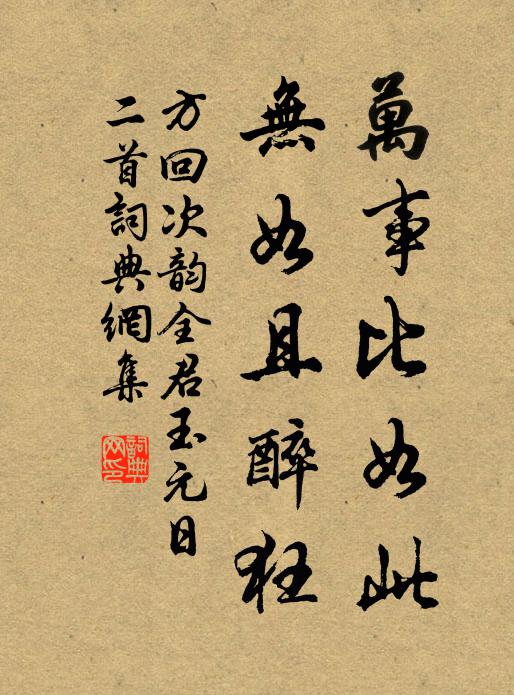 萬事比如此
無如且醉狂
方回次韵全君玉元日
二首詞典網集
詞典网印